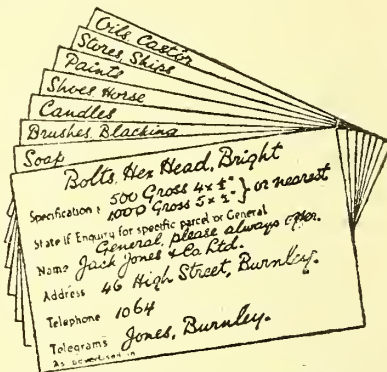 Oils, Castor
Stores, Ships
Paints
Shoes Horse
Candles
Brushes, Blacking
Soap
Bolts, Hex Head, Bright
Specification: 500 Gross 4 x ½" } or nearest
1000 Gross 5 x ½"
State if Enquiry for specific parcel or General
General, please always offer.
Name Jack Jones & Co Ltd.
Address 46 High Street, Burnley.
Telephone 1064
Telegrams Jones, Burnley.
As advertised in